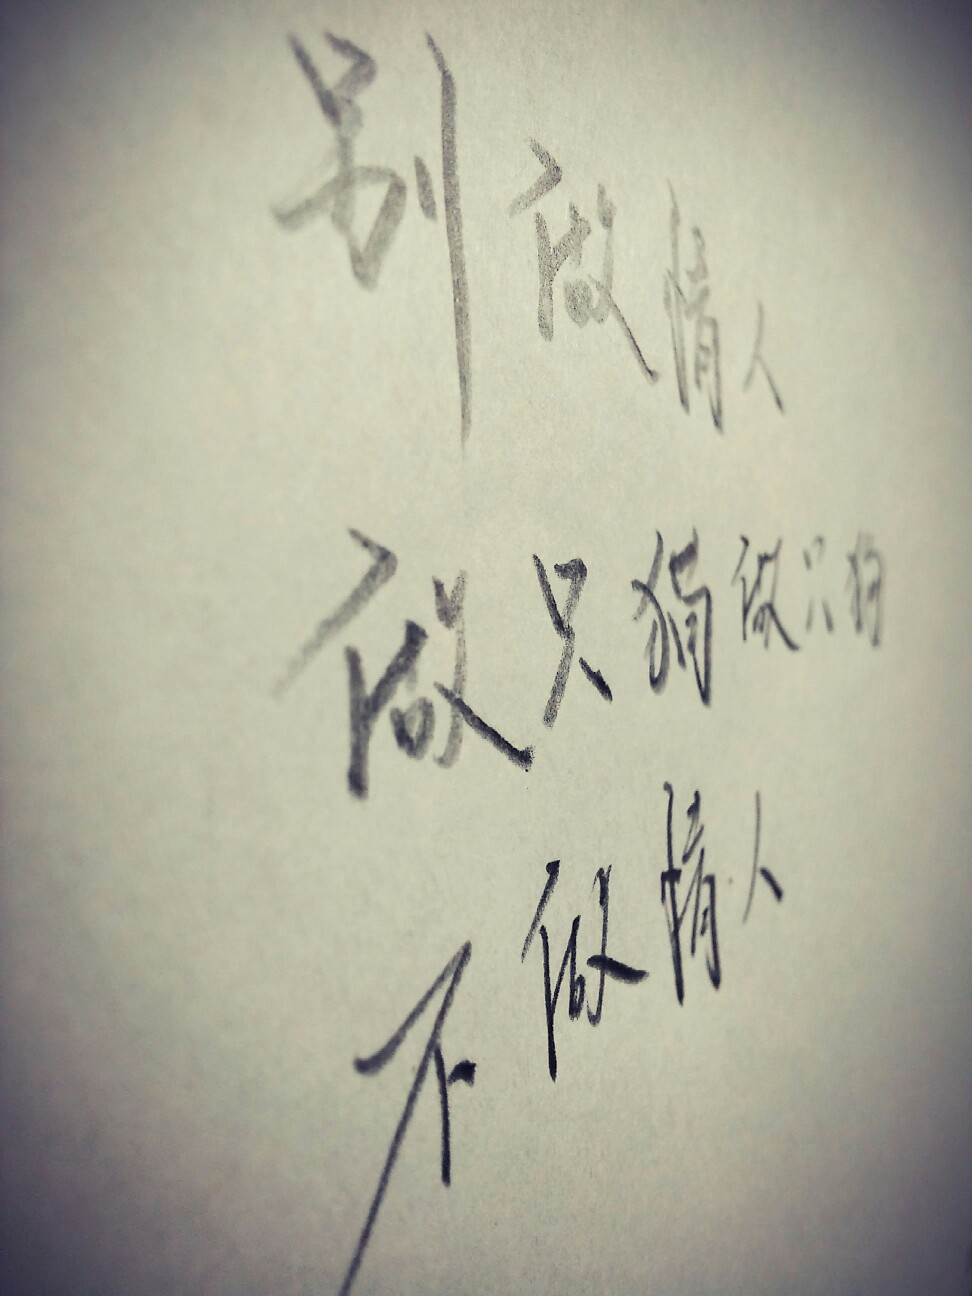 别做情人
做只猫做只狗
不做情人